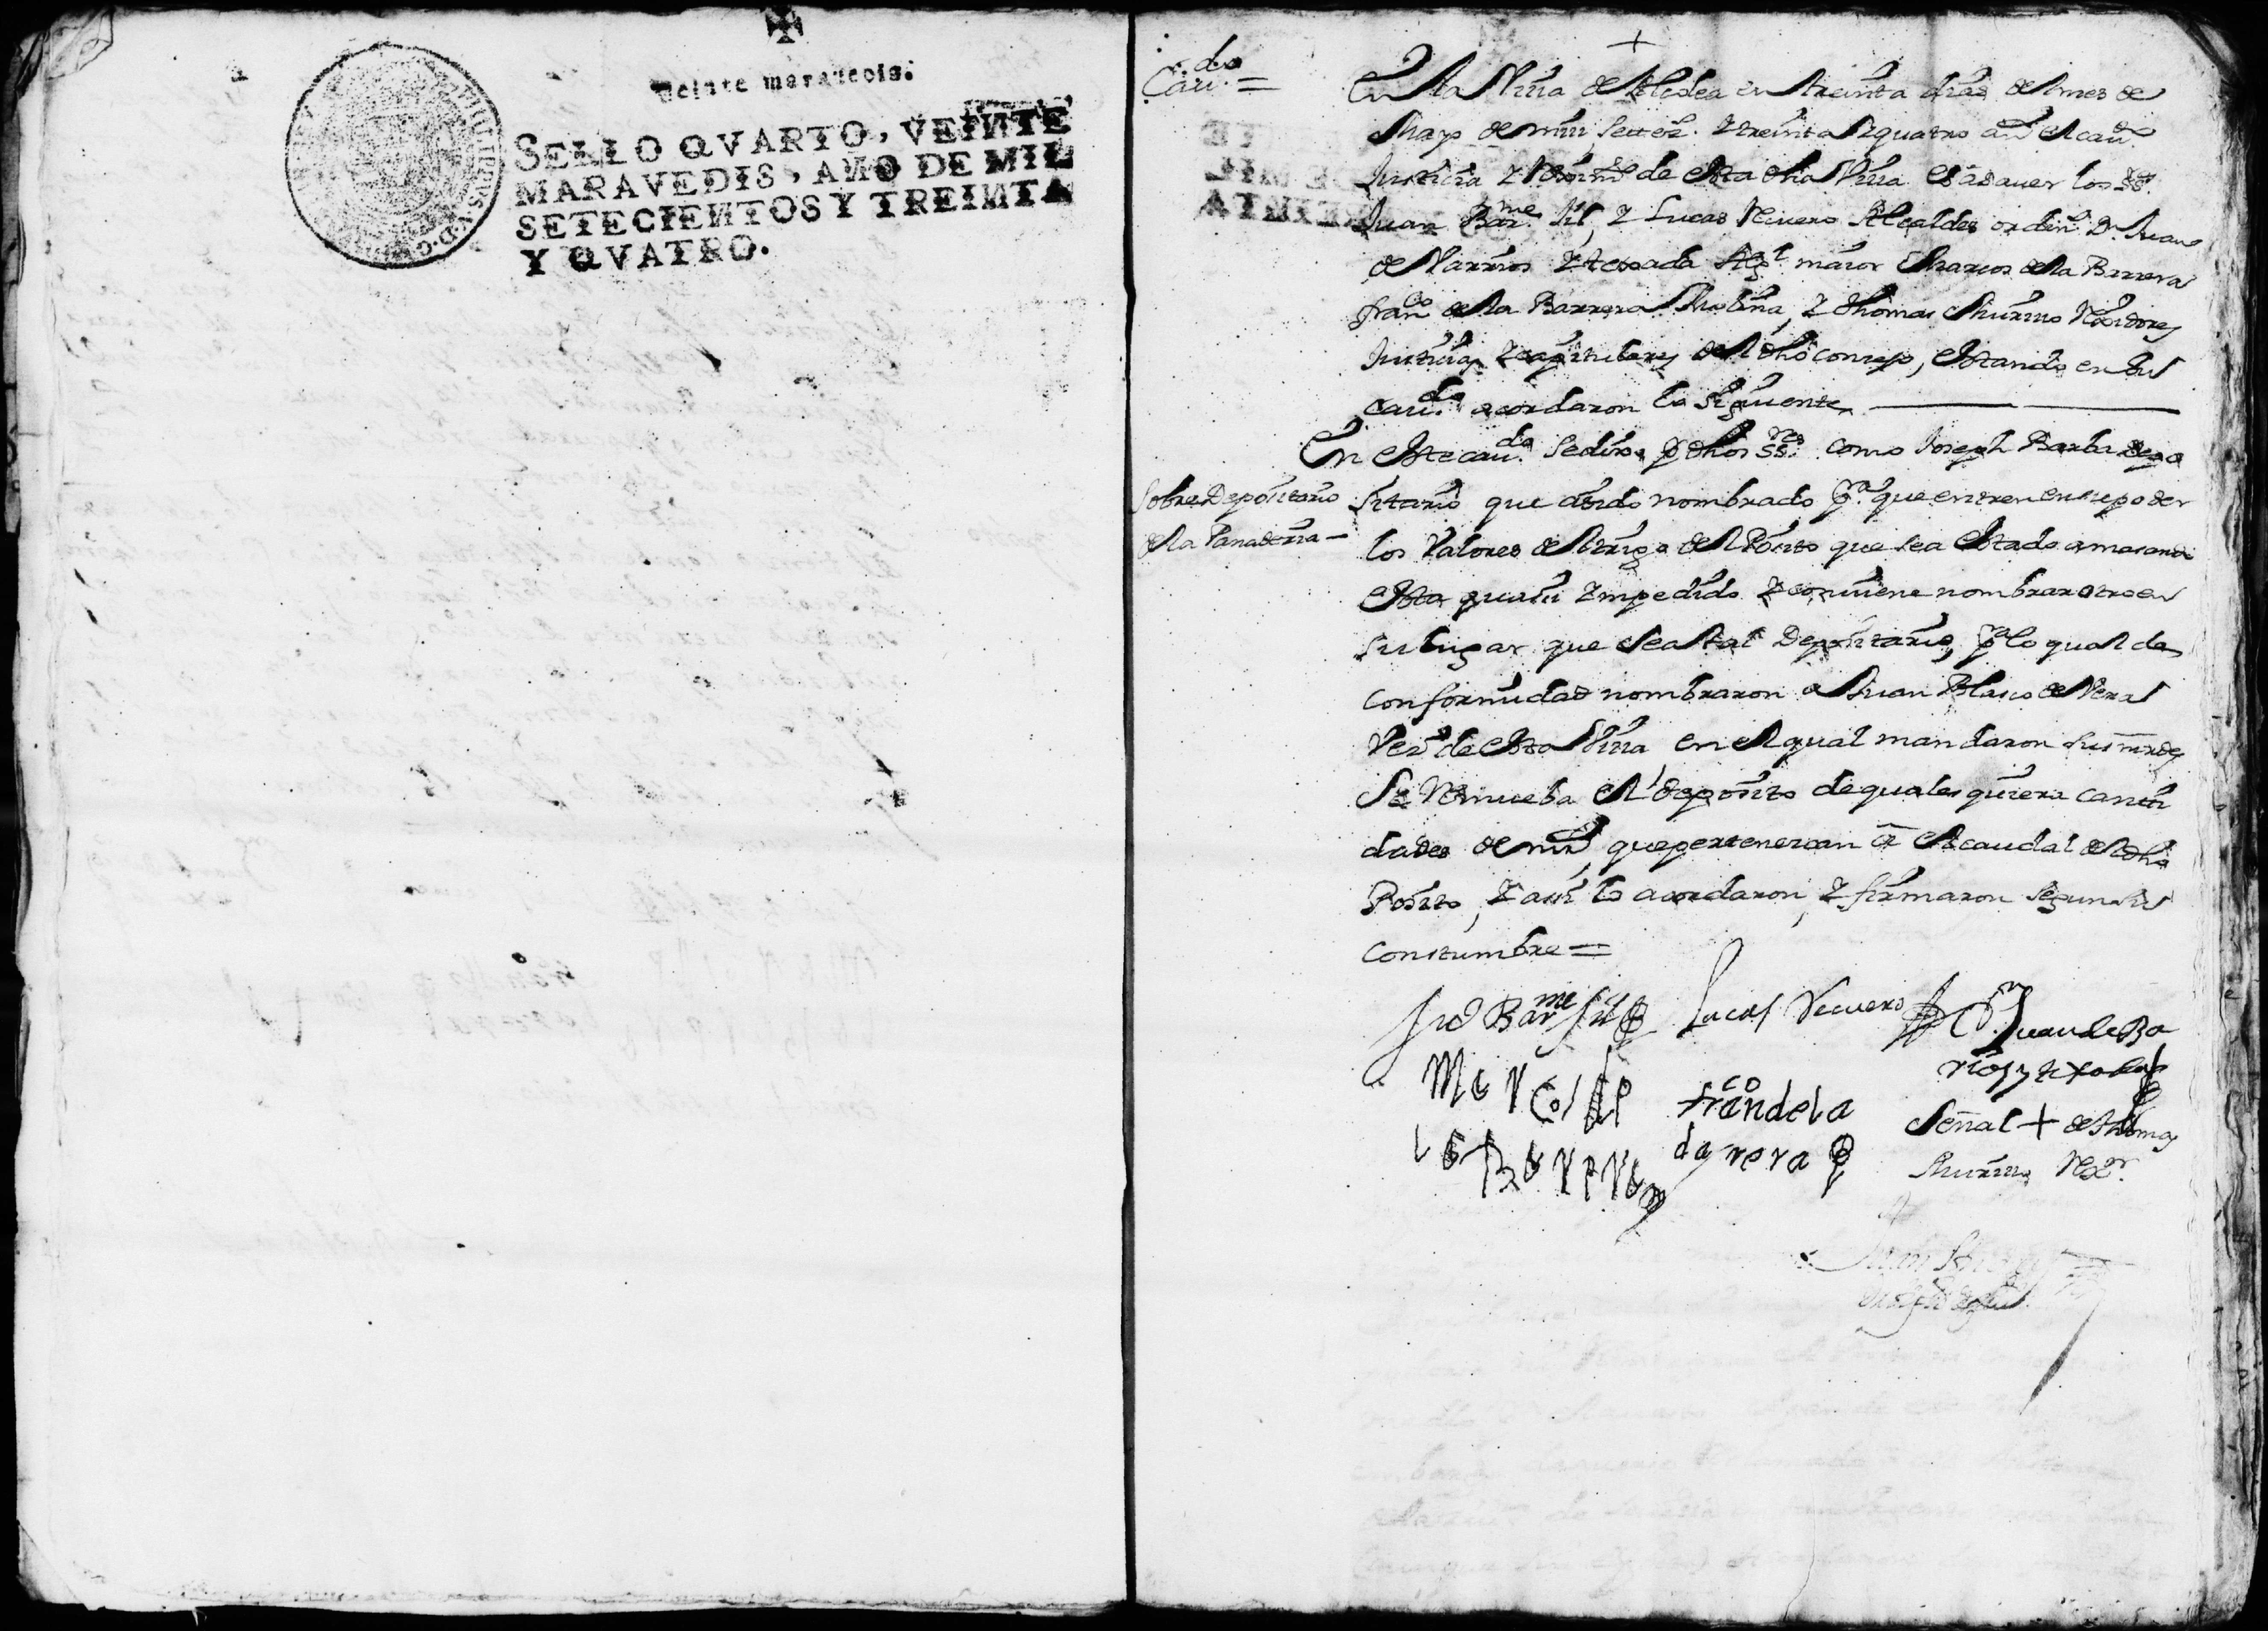 Veinte maravedis.
SELLO QVARTO, VEINTE
MARAVEDIS, AÑO DE MIL
SETECIENTOS Y TREINTA
Y QVATRO.
+
Cau.do =
En la Villa de en treinta dias del mes de
Mayo de mill setez.s y treinta y quatro años el cau.do
Justicia y Reximi.to de esta dha Villa es a saver los SS.res
Juan Bar.me Gil, y Lucas Viuero Alcaldes ordin.s D.n Juan
de Varrios y texada Alg.l maior Marcos de la Barrera
fran.co de la Barrera Molina, y thomas Murillo Rexidores
Justicia y capitulares del dho consejo, estando en su
cau.do acordaron lo siguiente
En este cau.do se dixo p.r dhos SS.res como Joseph Barba depo
Sobre Depositario
de la Panaderia -
sitario que a sido nombrado p.a que entren en su poder
los valores del trigo del Posito que se a estado amasando
esta quasi ympedido y conuiene nombrar otro en
su lugar que sea tal Depositario, p.a lo qual de
conformidad nombraron a Juan Blasco de Vera
Vez.o de esta Villa en el qual mandaron sus mrdes
se remueba el deposito de quales quiera canti
dades de mrs que pertenezcan a el caudal del dho
Posito, y assi lo acordaron, y firmaron segun su
constumbre =
Ju.o Bar.me Gil
Lucas Viuero
D.n Juan de Ba
rios y texada
Marcos de
la Barera
fran.co de la
barera
Señal + de thomas
Murillo Rex.or